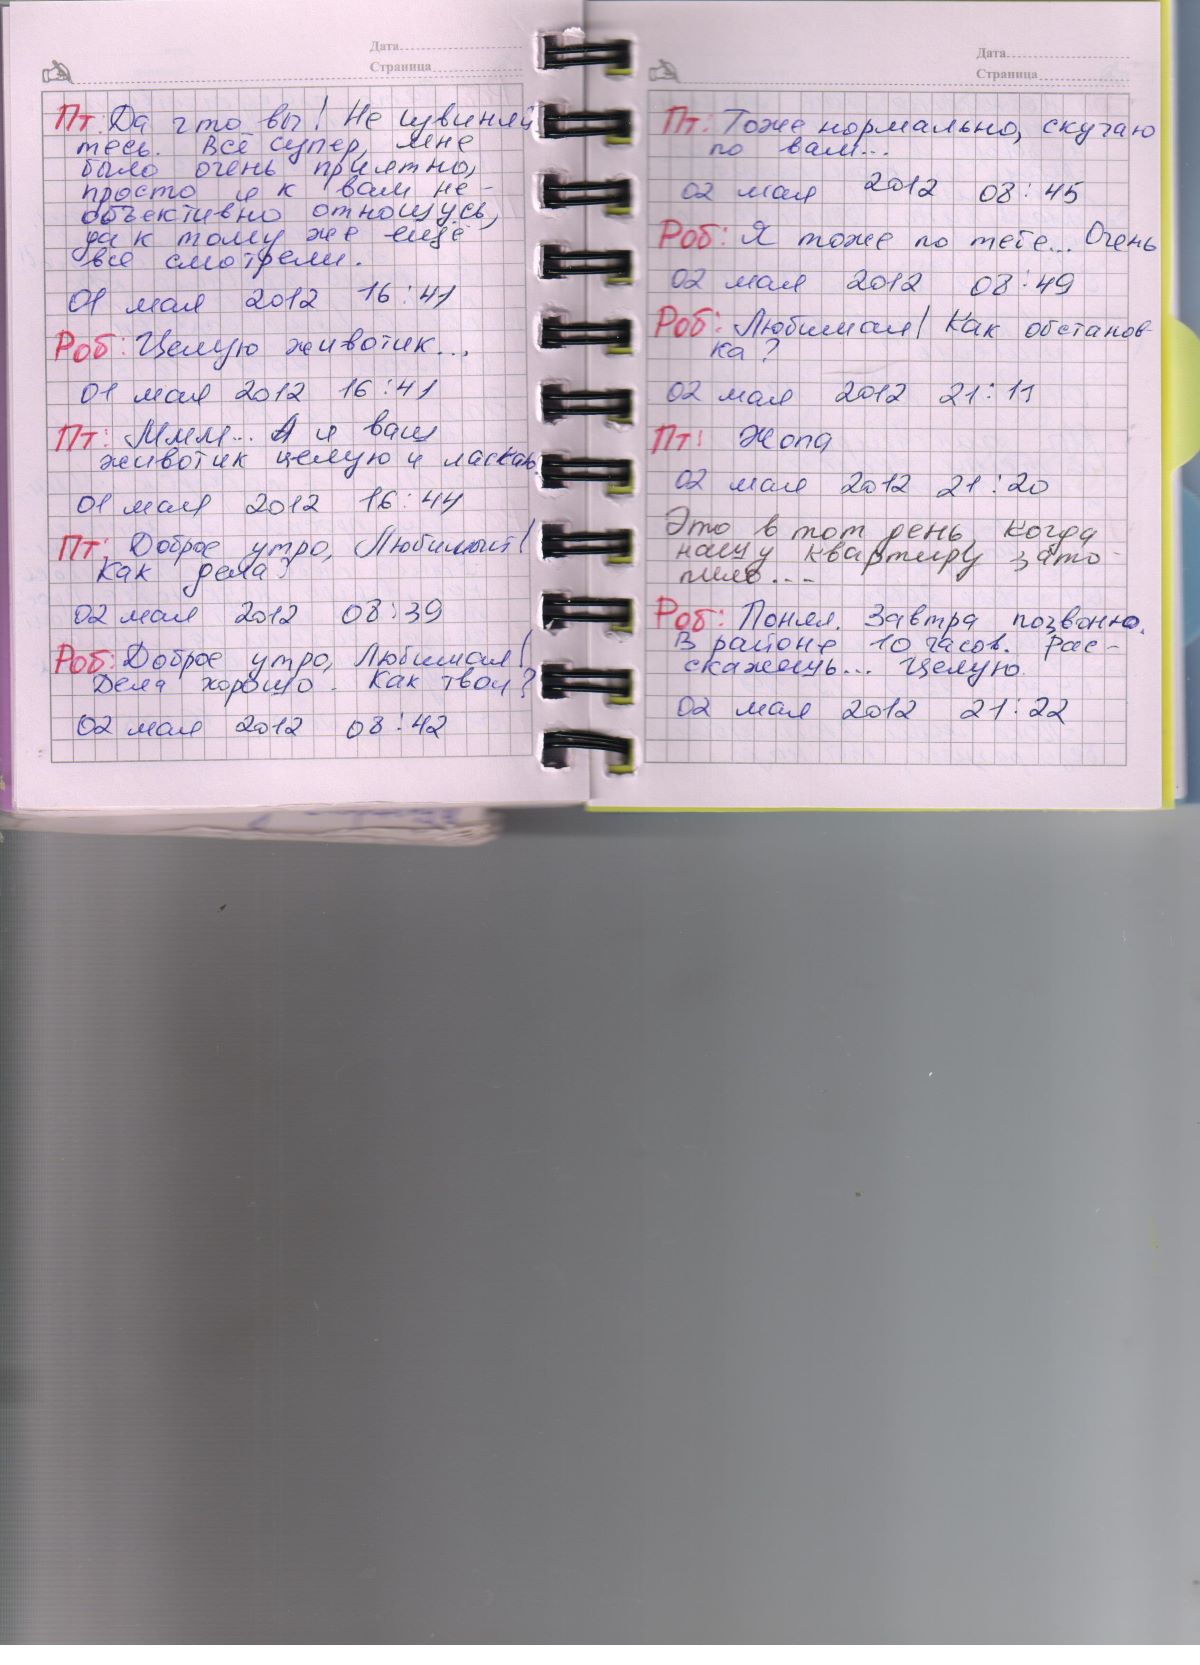 Дата
Страница
Пт: Да что вы! Не извиняй
тесь. Всё супер, мне
было очень приятно,
просто я к вам не-
объективно отношусь,
да к тому же ещё
все смотрели.
01 мая 2012 16:41
Роб: Целую животик...
01 мая 2012 16:41
Пт: Ммм... А я ваш
животик целую и ласкаю.
01 мая 2012 16:44
Пт: Доброе утро, Любимый!
Как дела?
02 мая 2012 08:39
Роб: Доброе утро, Любимая!
Дела хорошо. Как твои?
02 мая 2012 08:42
Дата
Страница
Пт: Тоже нормально, скучаю
по вам...
02 мая 2012 08:45
Роб: Я тоже по тебе... Очень
02 мая 2012 08:49
Роб: Любимая! Как обстанов-
ка?
02 мая 2012 21:11
Пт: Жопа
02 мая 2012 21:20
Это в тот день, когда
нашу квартиру зато-
пило...
Роб: Понял. Завтра позвоню.
В районе 10 часов. Рас-
скажешь... Целую.
02 мая 2012 21:22